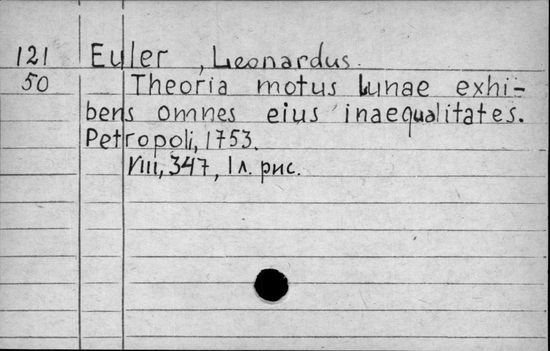 121 Euler, Leonardus.
50 Theoria motus Lunae exhi-
bens omnes eius inaequalitates.
Petropoli, 1753.
VIII, 347, 1 л. рис.